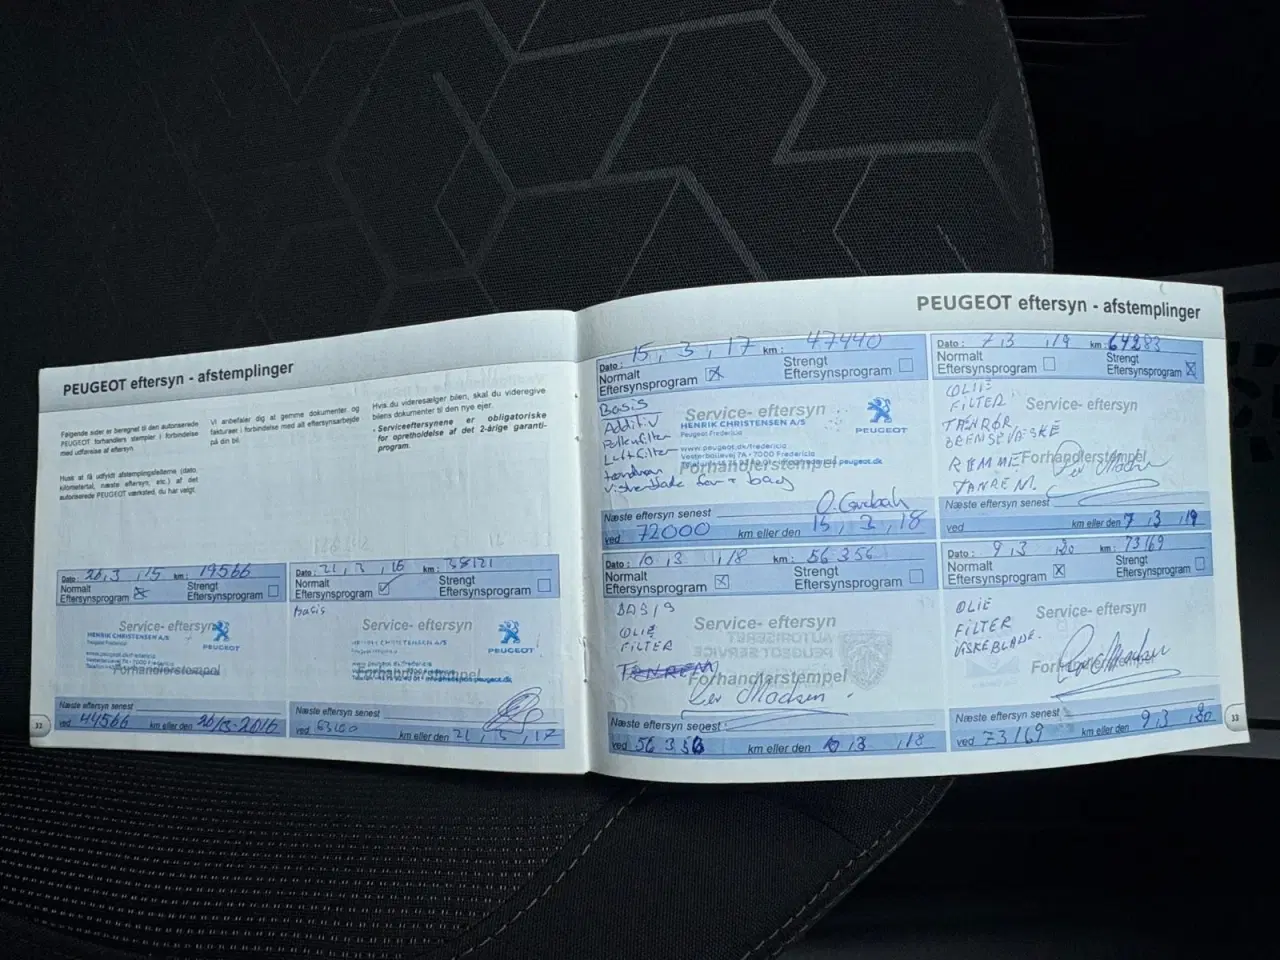 PEUGEOT eftersyn - afstemplinger
Følgende sider er beregnet til den autoriserede
PEUGEOT forhandlers stempler i forbindelse
med udførelse af eftersyn.
Husk at få udfyldt afstemplingsfelterne (dato
kilometertal, næste eftersyn, etc.) af det
autoriserede PEUGEOT værksted, du har valgt.
Vi anbefaler dig at gemme dokumenter og
fakturaer i forbindelse med alt eftersynsarbejde
på din bil.
Hvis du videresælger bilen, skal du videregive
bilens dokumenter til den nye ejer.
- Serviceeftersynene er obligatoriske
for opretholdelse af det 2-årige garanti-
program.
Dato: 20, 3, 15 km: 19566
Normalt Strengt
Eftersynsprogram Eftersynsprogram
Service- eftersyn
HENRIK CHRISTENSEN A/S
Peugeot Fredericia
PEUGEOT
Forhandlerstempel
Næste eftersyn senest
ved 44566 km eller den 20/3-2016
Dato: 21, 3, 16 km: 38121
Normalt Strengt
Eftersynsprogram Eftersynsprogram
Basis
Service- eftersyn
HENRIK CHRISTENSEN A/S
PEUGEOT
Forhandlerstempel
Næste eftersyn senest
ved km eller den 21, 3, 17
32
PEUGEOT eftersyn - afstemplinger
Dato: 15, 3, 17 km: 47440
Normalt Strengt
Eftersynsprogram Eftersynsprogram
Basis
Additiv
Pollenfilter
Luftfilter
tændrør
viskerblade for + bag
Service- eftersyn
HENRIK CHRISTENSEN A/S
Peugeot Fredericia
www.peugeot.dk/fredericia
Vesterballevej 7A - 7000 Fredericia
PEUGEOT
Forhandlerstempel
Næste eftersyn senest
ved 72000 km eller den 15, 3, 18
Dato: 10, 3, 18 km: 56356
Normalt Strengt
Eftersynsprogram Eftersynsprogram
BASIS
OLIE
FILTER
TANREM
Service- eftersyn
Forhandlerstempel
Næste eftersyn senest
ved 56356 km eller den 10, 3, 18
Dato: 7, 3, 19 km: 64283
Normalt Strengt
Eftersynsprogram Eftersynsprogram
OLIE
FILTER
TÆNRØR
BREMSEVÆSKE
REMME
TANREM.
Service- eftersyn
Forhandlerstempel
Næste eftersyn senest
ved km eller den 7, 3, 19
Dato: 9, 3, 20 km: 73169
Normalt Strengt
Eftersynsprogram Eftersynsprogram
OLIE
FILTER
VISKEBLADE.
Service- eftersyn
Forhandlerstempel
Næste eftersyn senest
ved 73169 km eller den 9, 3, 20
33